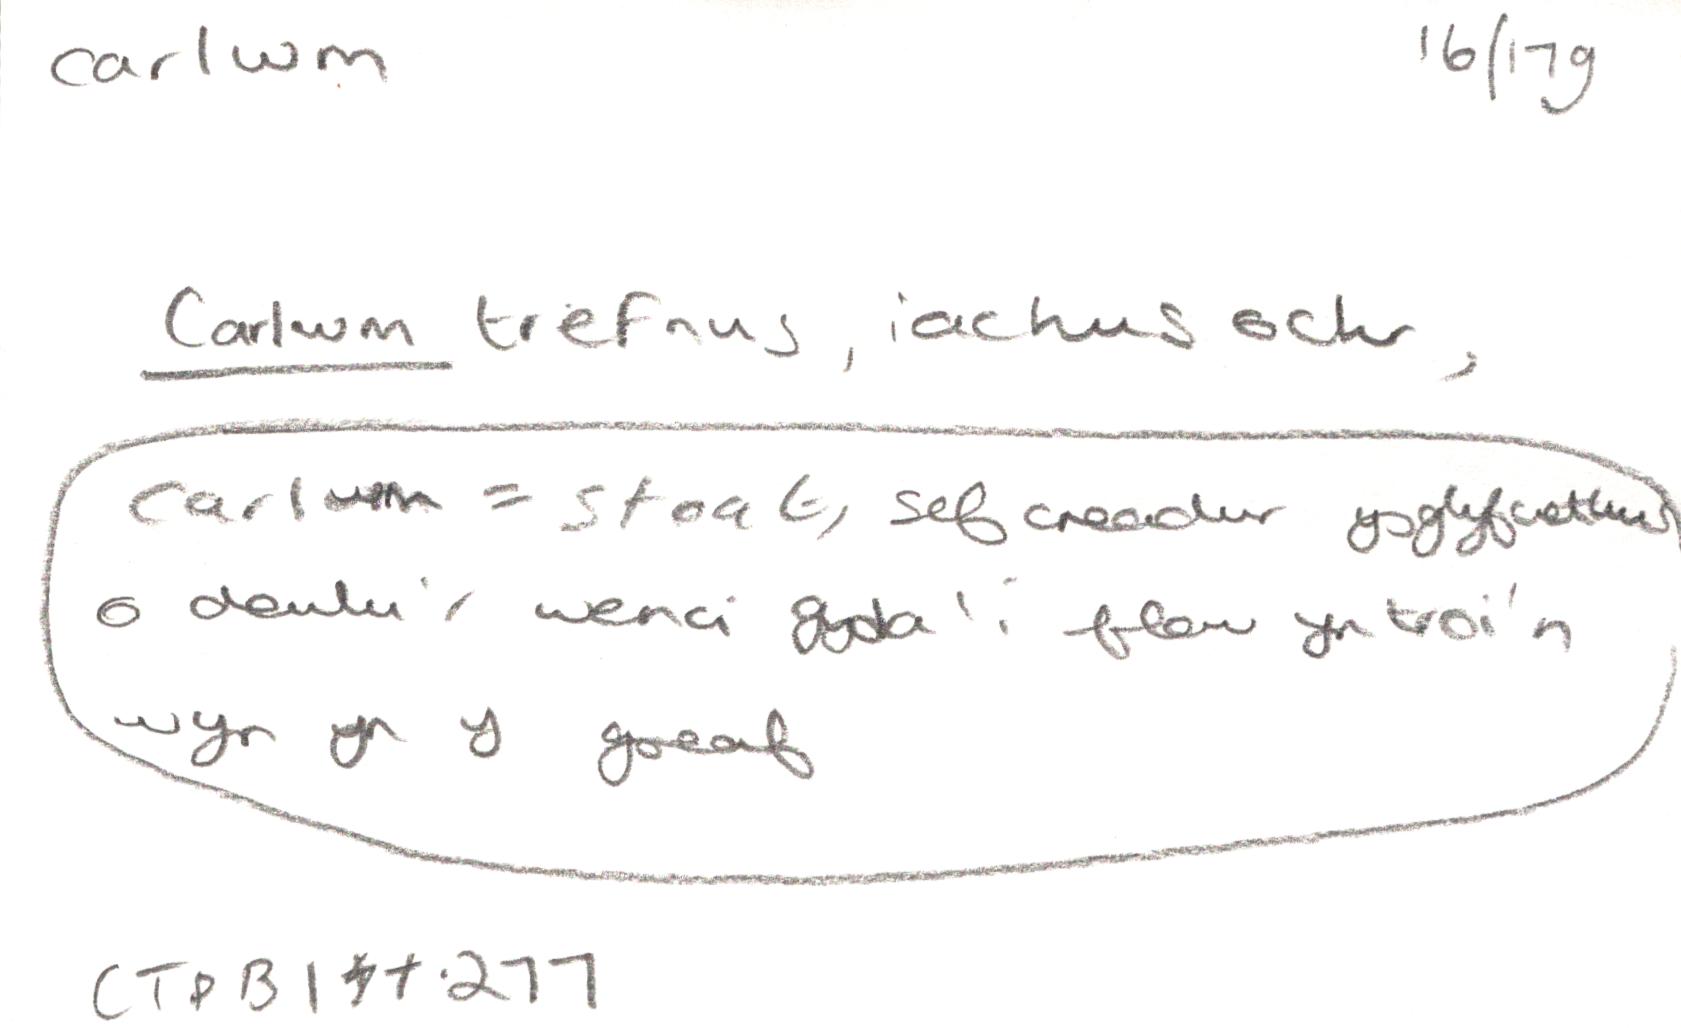 carlwm 16/17g
Carlwm trefnus, iachus ochr,
carlwm = stoat, sef creadur ysglyfaethus
o deulu'r wenci gyda'i flew yn troi'n
wyn yn y gaeaf
277